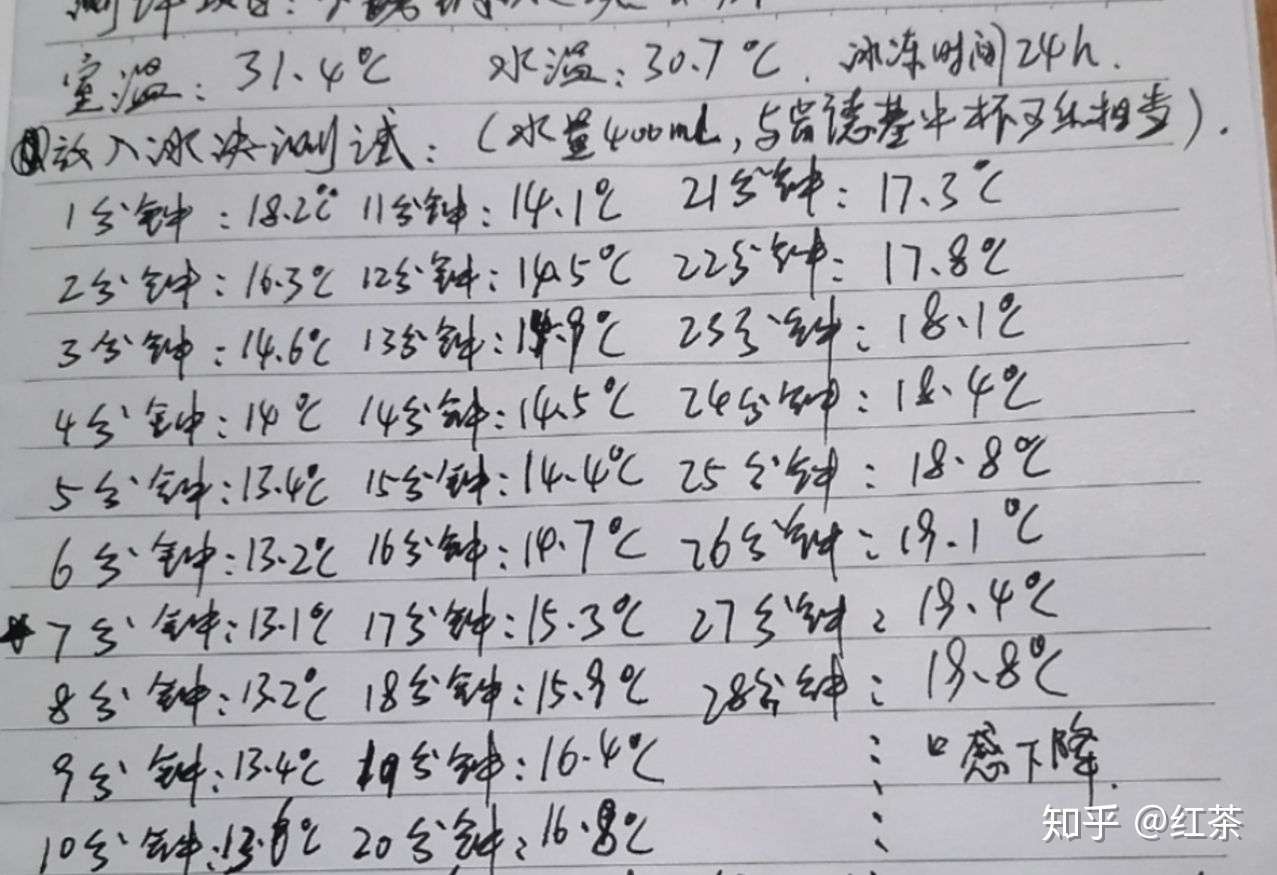 室温：31.4℃ 水温：30.7℃. 冰冻时间24h.
放入冰块测试：（水量400mL，与肯德基中杯可乐相当）.
1分钟：18.2℃ 11分钟：14.1℃ 21分钟：17.3℃
2分钟：16.3℃ 12分钟：14.5℃ 22分钟：17.8℃
3分钟：14.6℃ 13分钟：14.9℃ 23分钟：18.1℃
4分钟：14℃ 14分钟：14.5℃ 24分钟：18.4℃
5分钟：13.4℃ 15分钟：14.4℃ 25分钟：18.8℃
6分钟：13.2℃ 16分钟：14.7℃ 26分钟：19.1℃
7分钟：13.1℃ 17分钟：15.3℃ 27分钟：19.4℃
8分钟：13.2℃ 18分钟：15.9℃ 28分钟：19.8℃
9分钟：13.4℃ 19分钟：16.4℃ ⋮ 口感下降.
10分钟：13.6℃ 20分钟：16.8℃ ⋮
知乎 @红茶